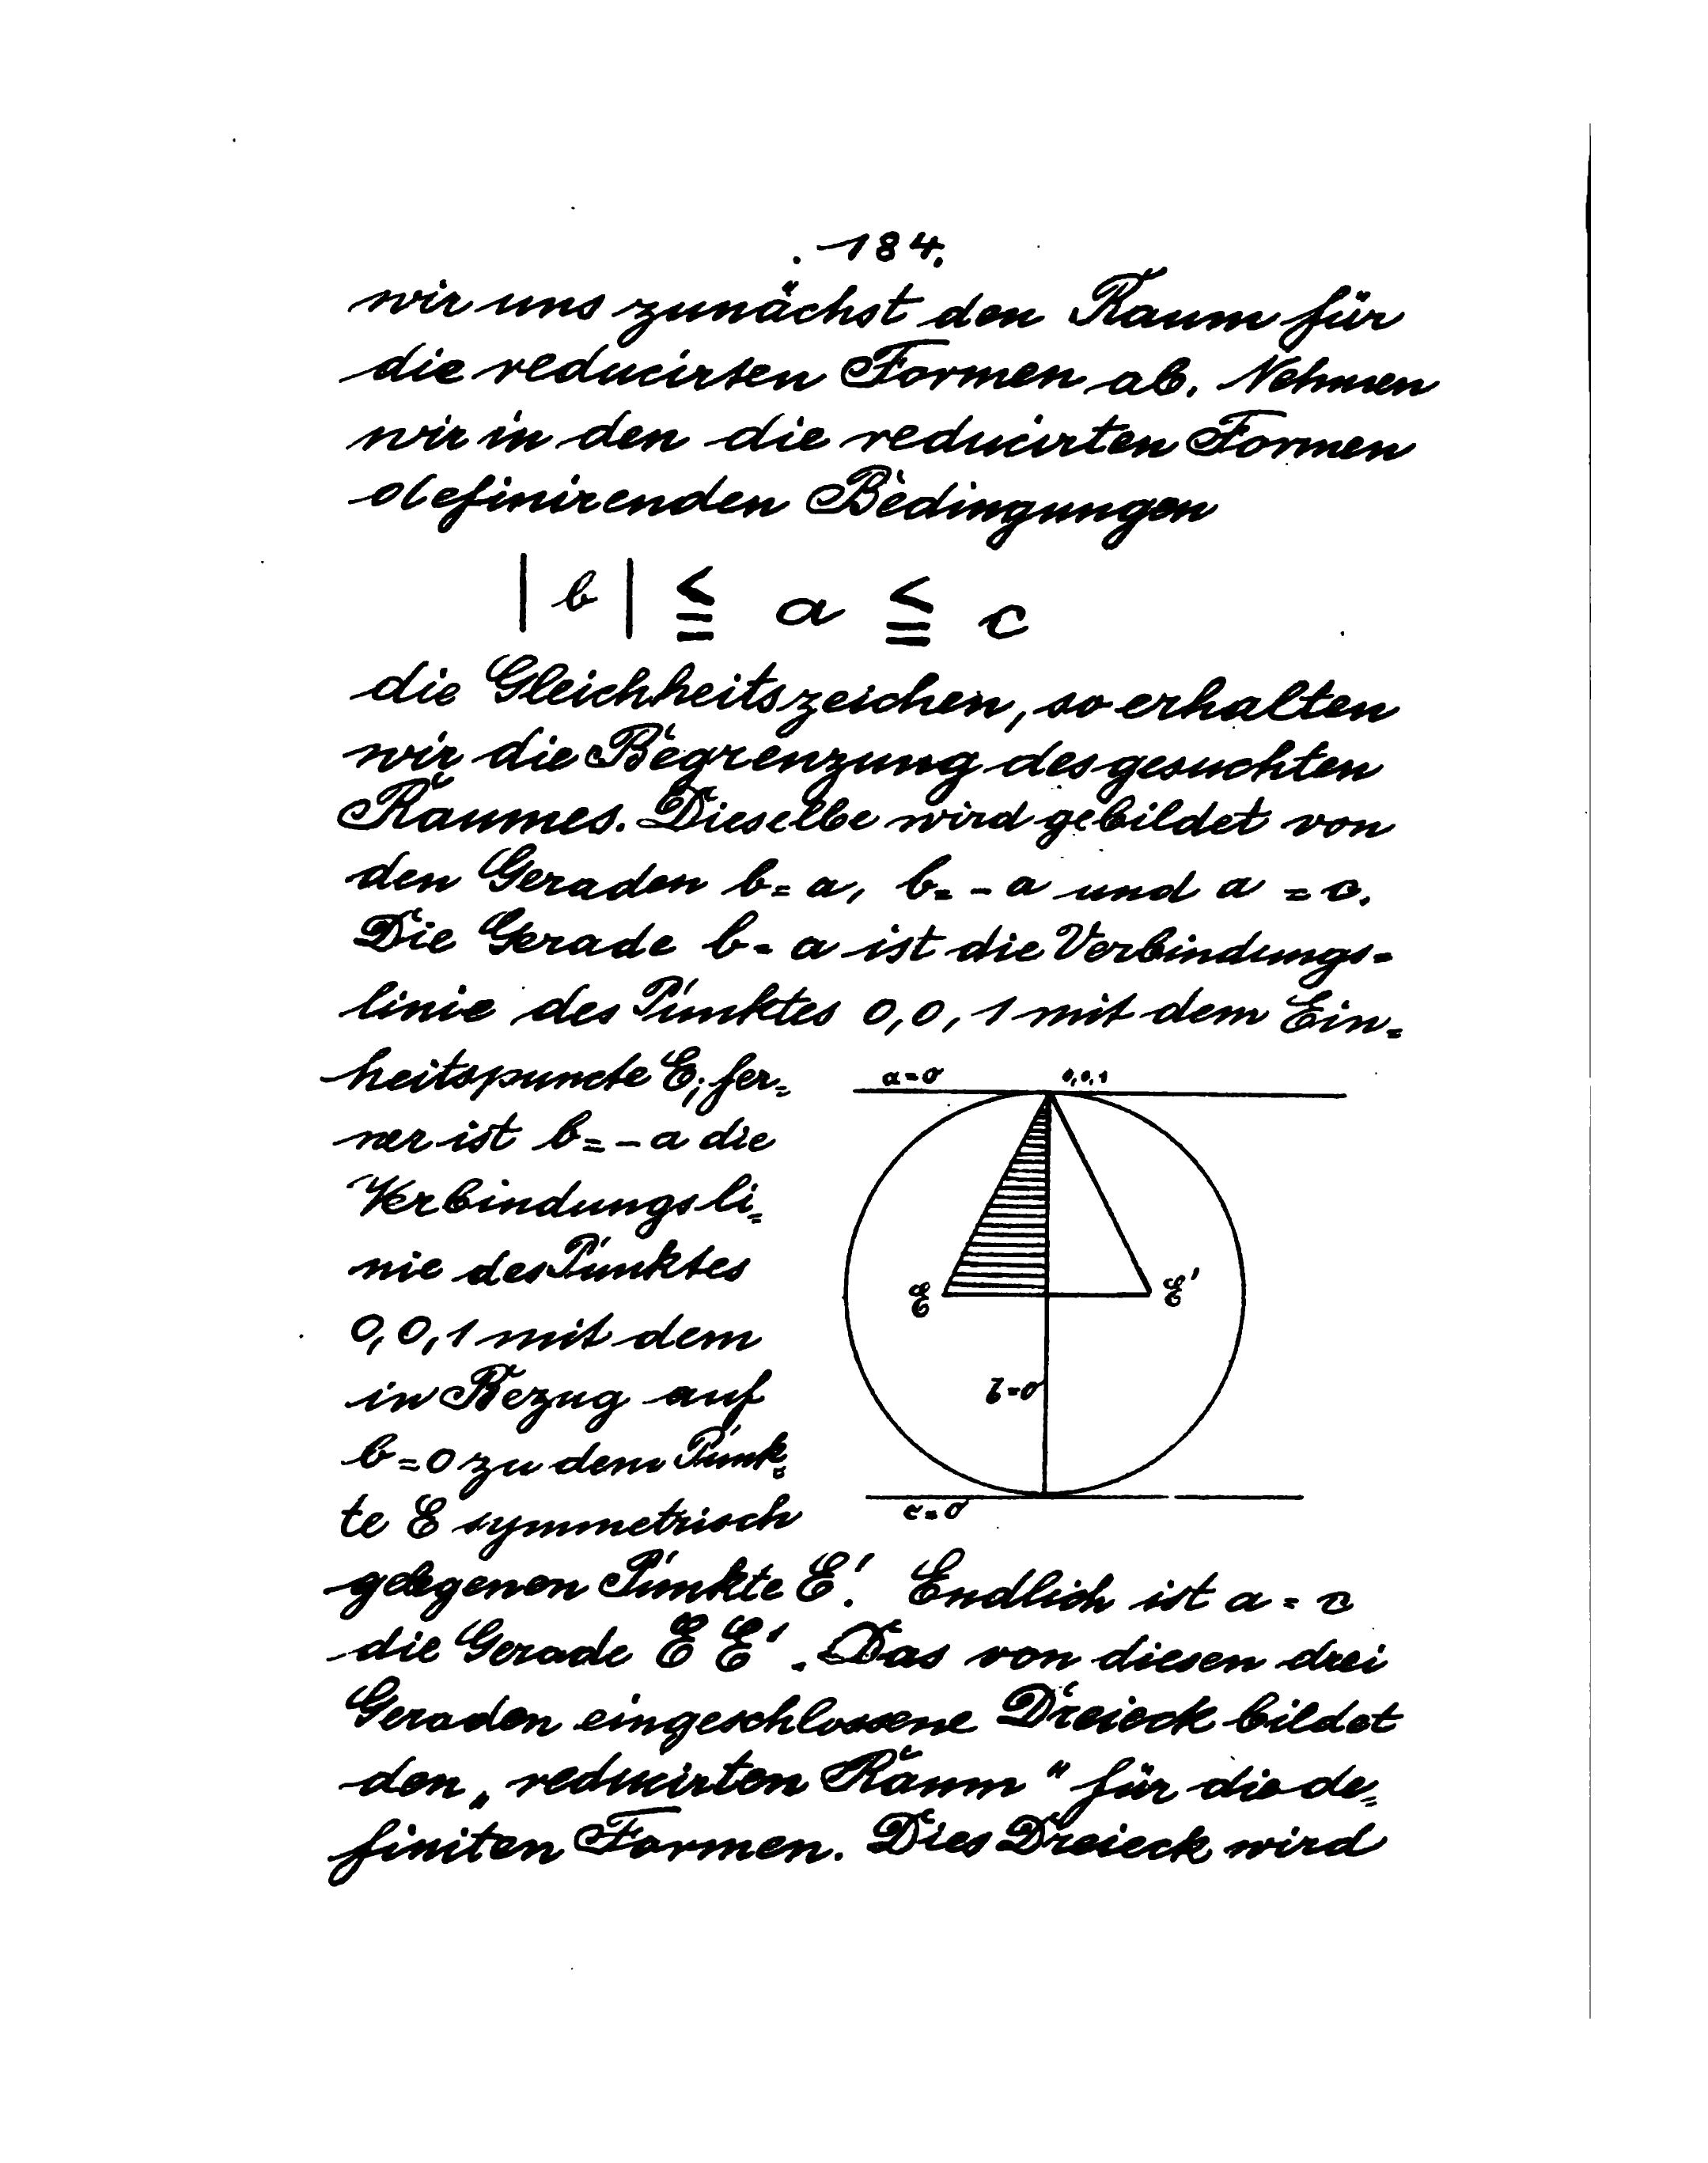 . 184.
wir uns zunächst den Raum für
die reducirten Formen ab. Nehmen
wir in den die reducirten Formen
definirenden Bedingungen
|b| ≦ a ≦ c
die Gleichheitszeichen, so erhalten
wir die Begrenzung des gesuchten
Raumes. Dieselbe wird gebildet von
den Geraden b = a, b = - a und a = c.
Die Gerade b = a ist die Verbindungs=
linie des Punktes 0,0,1 mit dem Ein=
heitspuncte E; fer=
ner ist b = - a die
Verbindungsli=
nie des Punktes
0,0,1 mit dem
in Bezug auf
b = 0 zu dem Punk=
te E symmetrisch
a = 0
0,0,1
E
E'
b = 0
c = 0
gelegenen Punkte E'. Endlich ist a = c
die Gerade E E'. Das von diesen drei
Geraden eingeschlossene Dreieck bildet
den „reducirten Raum" für die de=
finiten Formen. Dies Dreieck wird